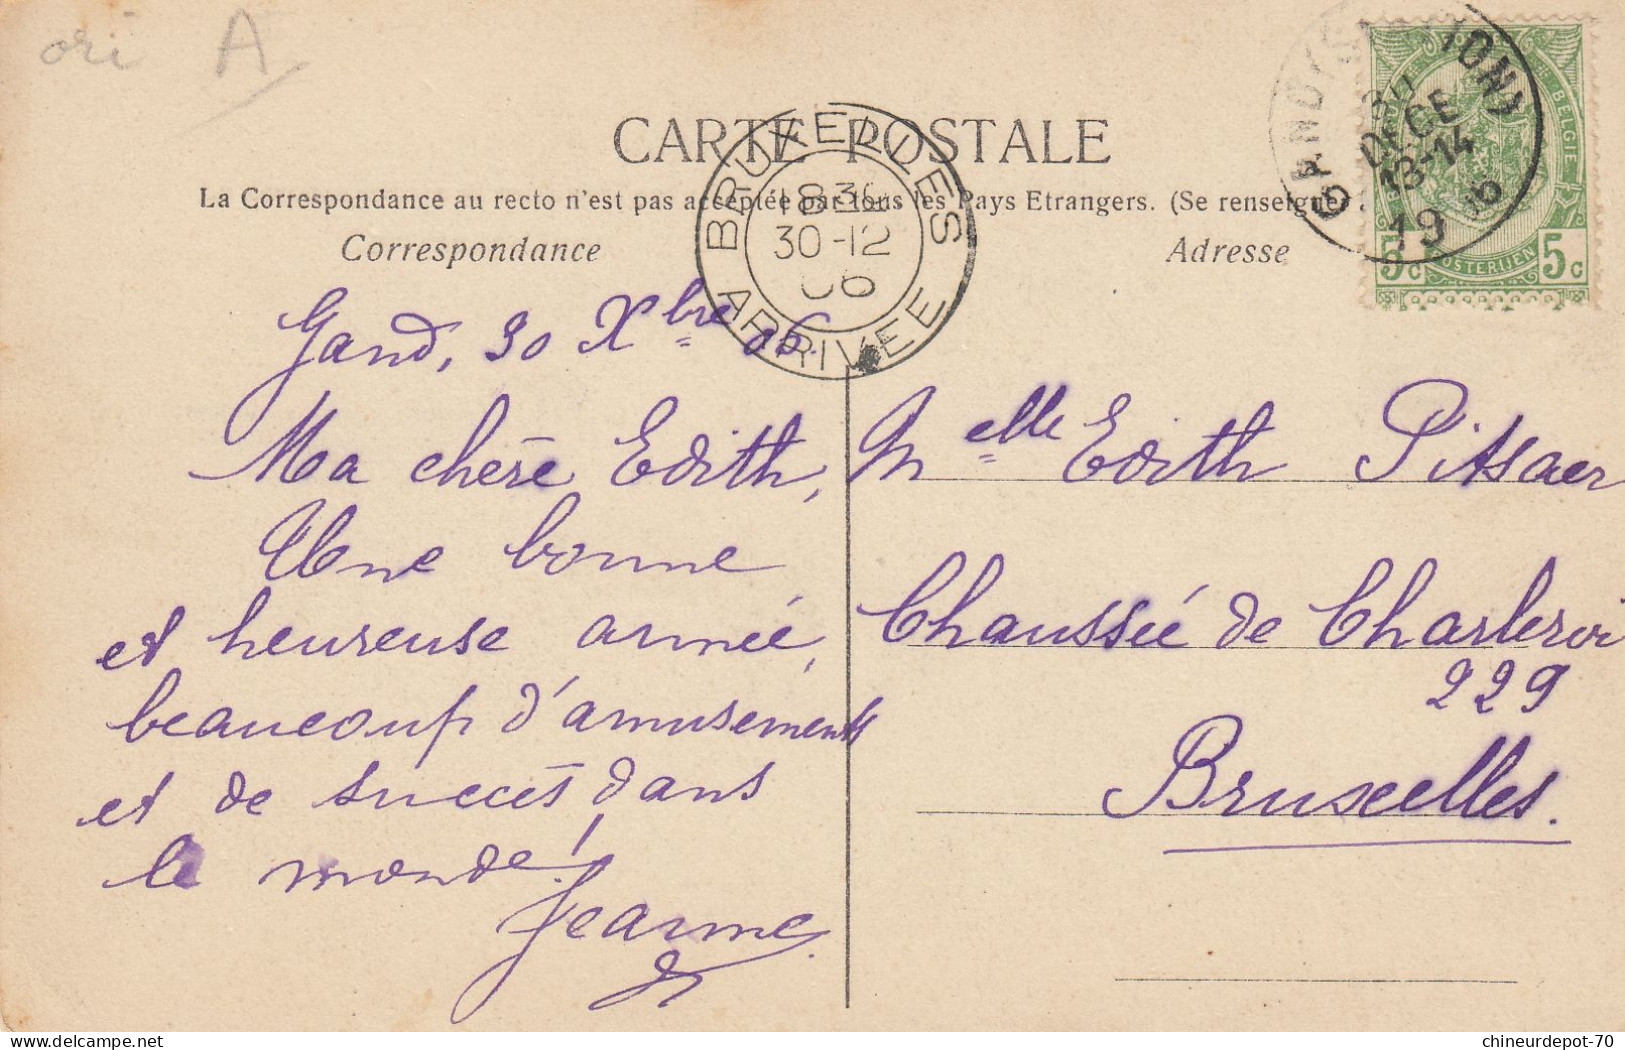 ori A
CARTE POSTALE
La Correspondance au recto n'est pas acceptée par tous les Pays Etrangers. (Se renseigner
Correspondance
Adresse
BRUXELLES
30-12
06
ARRIVEE
DECE
13-14
19 06
BELGIE
5c 5c
Gand, 30 Xbre 06.
Ma chère Edith,
Une bonne
et heureuse année,
beaucoup d'amusements
et de succès dans
le monde!
Jeanne
Melle Edith Pitsaer
Chaussée de Charleroi
229
Bruxelles.
chineurdepot-70